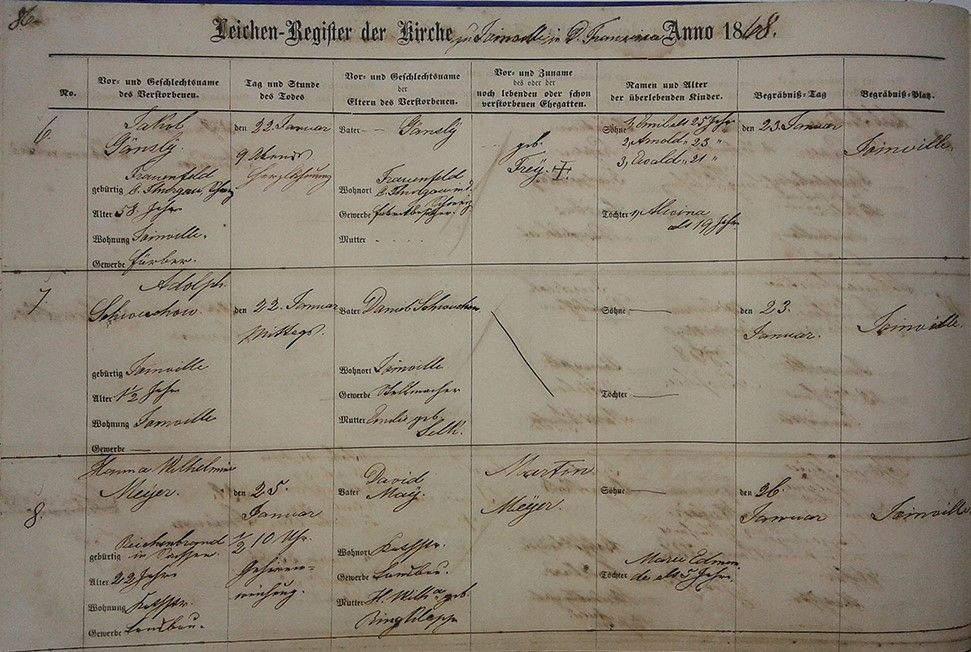 86
Leichen-Register der Kirche zu Joinville in D. Francisca Anno 1868.
No.
Vor- und Geschlechtsname
des Verstorbenen.
Tag und Stunde
des Todes
Vor- und Geschlechtsname
der
Eltern des Verstorbenen.
Vor- und Zuname
des oder der
noch lebenden oder schon
verstorbenen Ehegatten.
Namen und Alter
der überlebenden Kinder.
Begräbniß-Tag
Begräbniß-Platz.
6
Jakob
Gänsly
gebürtig Frauenfeld
C. Thurgau,
Alter 58 Jahr
Wohnung Joinville.
Gewerbe Färber.
den 22 Januar
9 Abends
Vater Gänsly
Wohnort Frauenfeld
Gewerbe Fabrikbesitzer.
Mutter
geb.
Frey. +
Söhne 1, Emil alt 25 Jahr
2, Arnold " 23 "
3, Ewald " 21 "
Töchter 1, Alwina
alt 19 Jahr
den 23 Januar
Joinville.
7
Adolph
gebürtig Joinville
Alter 1 1/2 Jahr
Wohnung Joinville
Gewerbe —
den 22. Januar
Mittags.
Vater Daniel
Wohnort Joinville
Gewerbe Stellmacher
Mutter Emilie geb.
Selk.
Söhne —
Töchter —
den 23.
Januar.
Joinville.
8.
Hanna Wilhelmine
Meyer.
gebürtig Reichenbrand
in Sachsen
Alter 22 Jahr
Wohnung
Gewerbe Landbau.
den 25.
Januar
1/2 10 Uhr.
Vater David
May.
Wohnort
Gewerbe Landbau.
Mutter H. Wilha geb.
Martin
Meyer.
Söhne —
Töchter Marie
alt 5 Jahr.
den 26.
Januar
Joinville